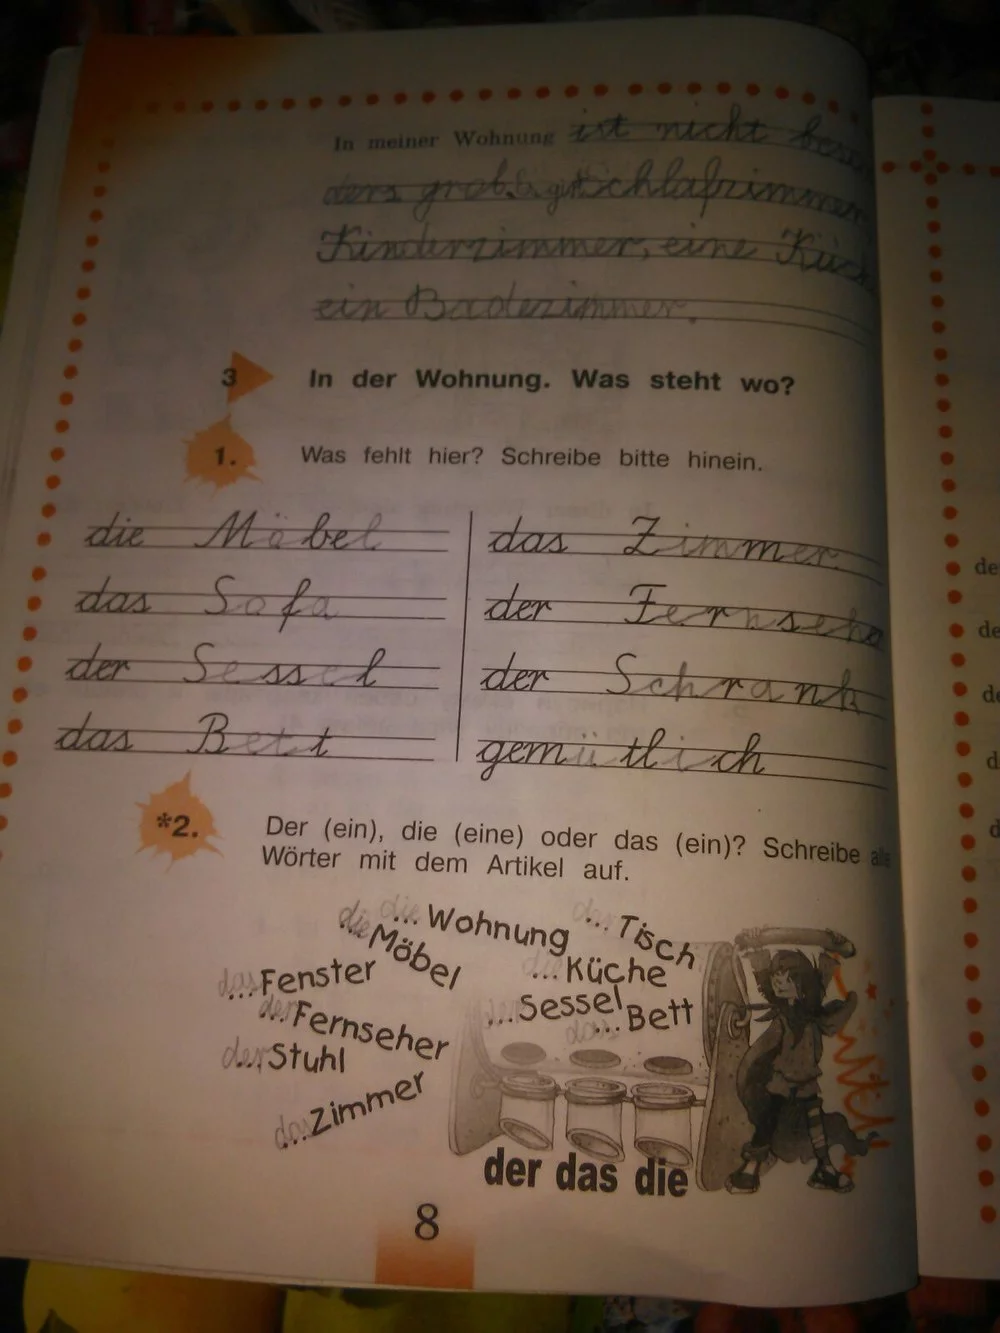 In meiner Wohnung ist nicht beson
ders groß. Schlafzimmer
Kinderzimmer, eine Küch
ein Badezimmer.
3 In der Wohnung. Was steht wo?
1. Was fehlt hier? Schreibe bitte hinein.
die Möbel
das Sofa
der Sessel
das Bett
das Zimmer
der Fernsehe
der Schrank
gemütlich
*2. Der (ein), die (eine) oder das (ein)? Schreibe alle
Wörter mit dem Artikel auf.
die ... Wohnung
das ... Tisch
die ... Möbel
die ... Küche
das ... Fenster
... Sessel
das ... Bett
der ... Fernseher
der ... Stuhl
das ... Zimmer
der das die
8
de
de
de
d
d